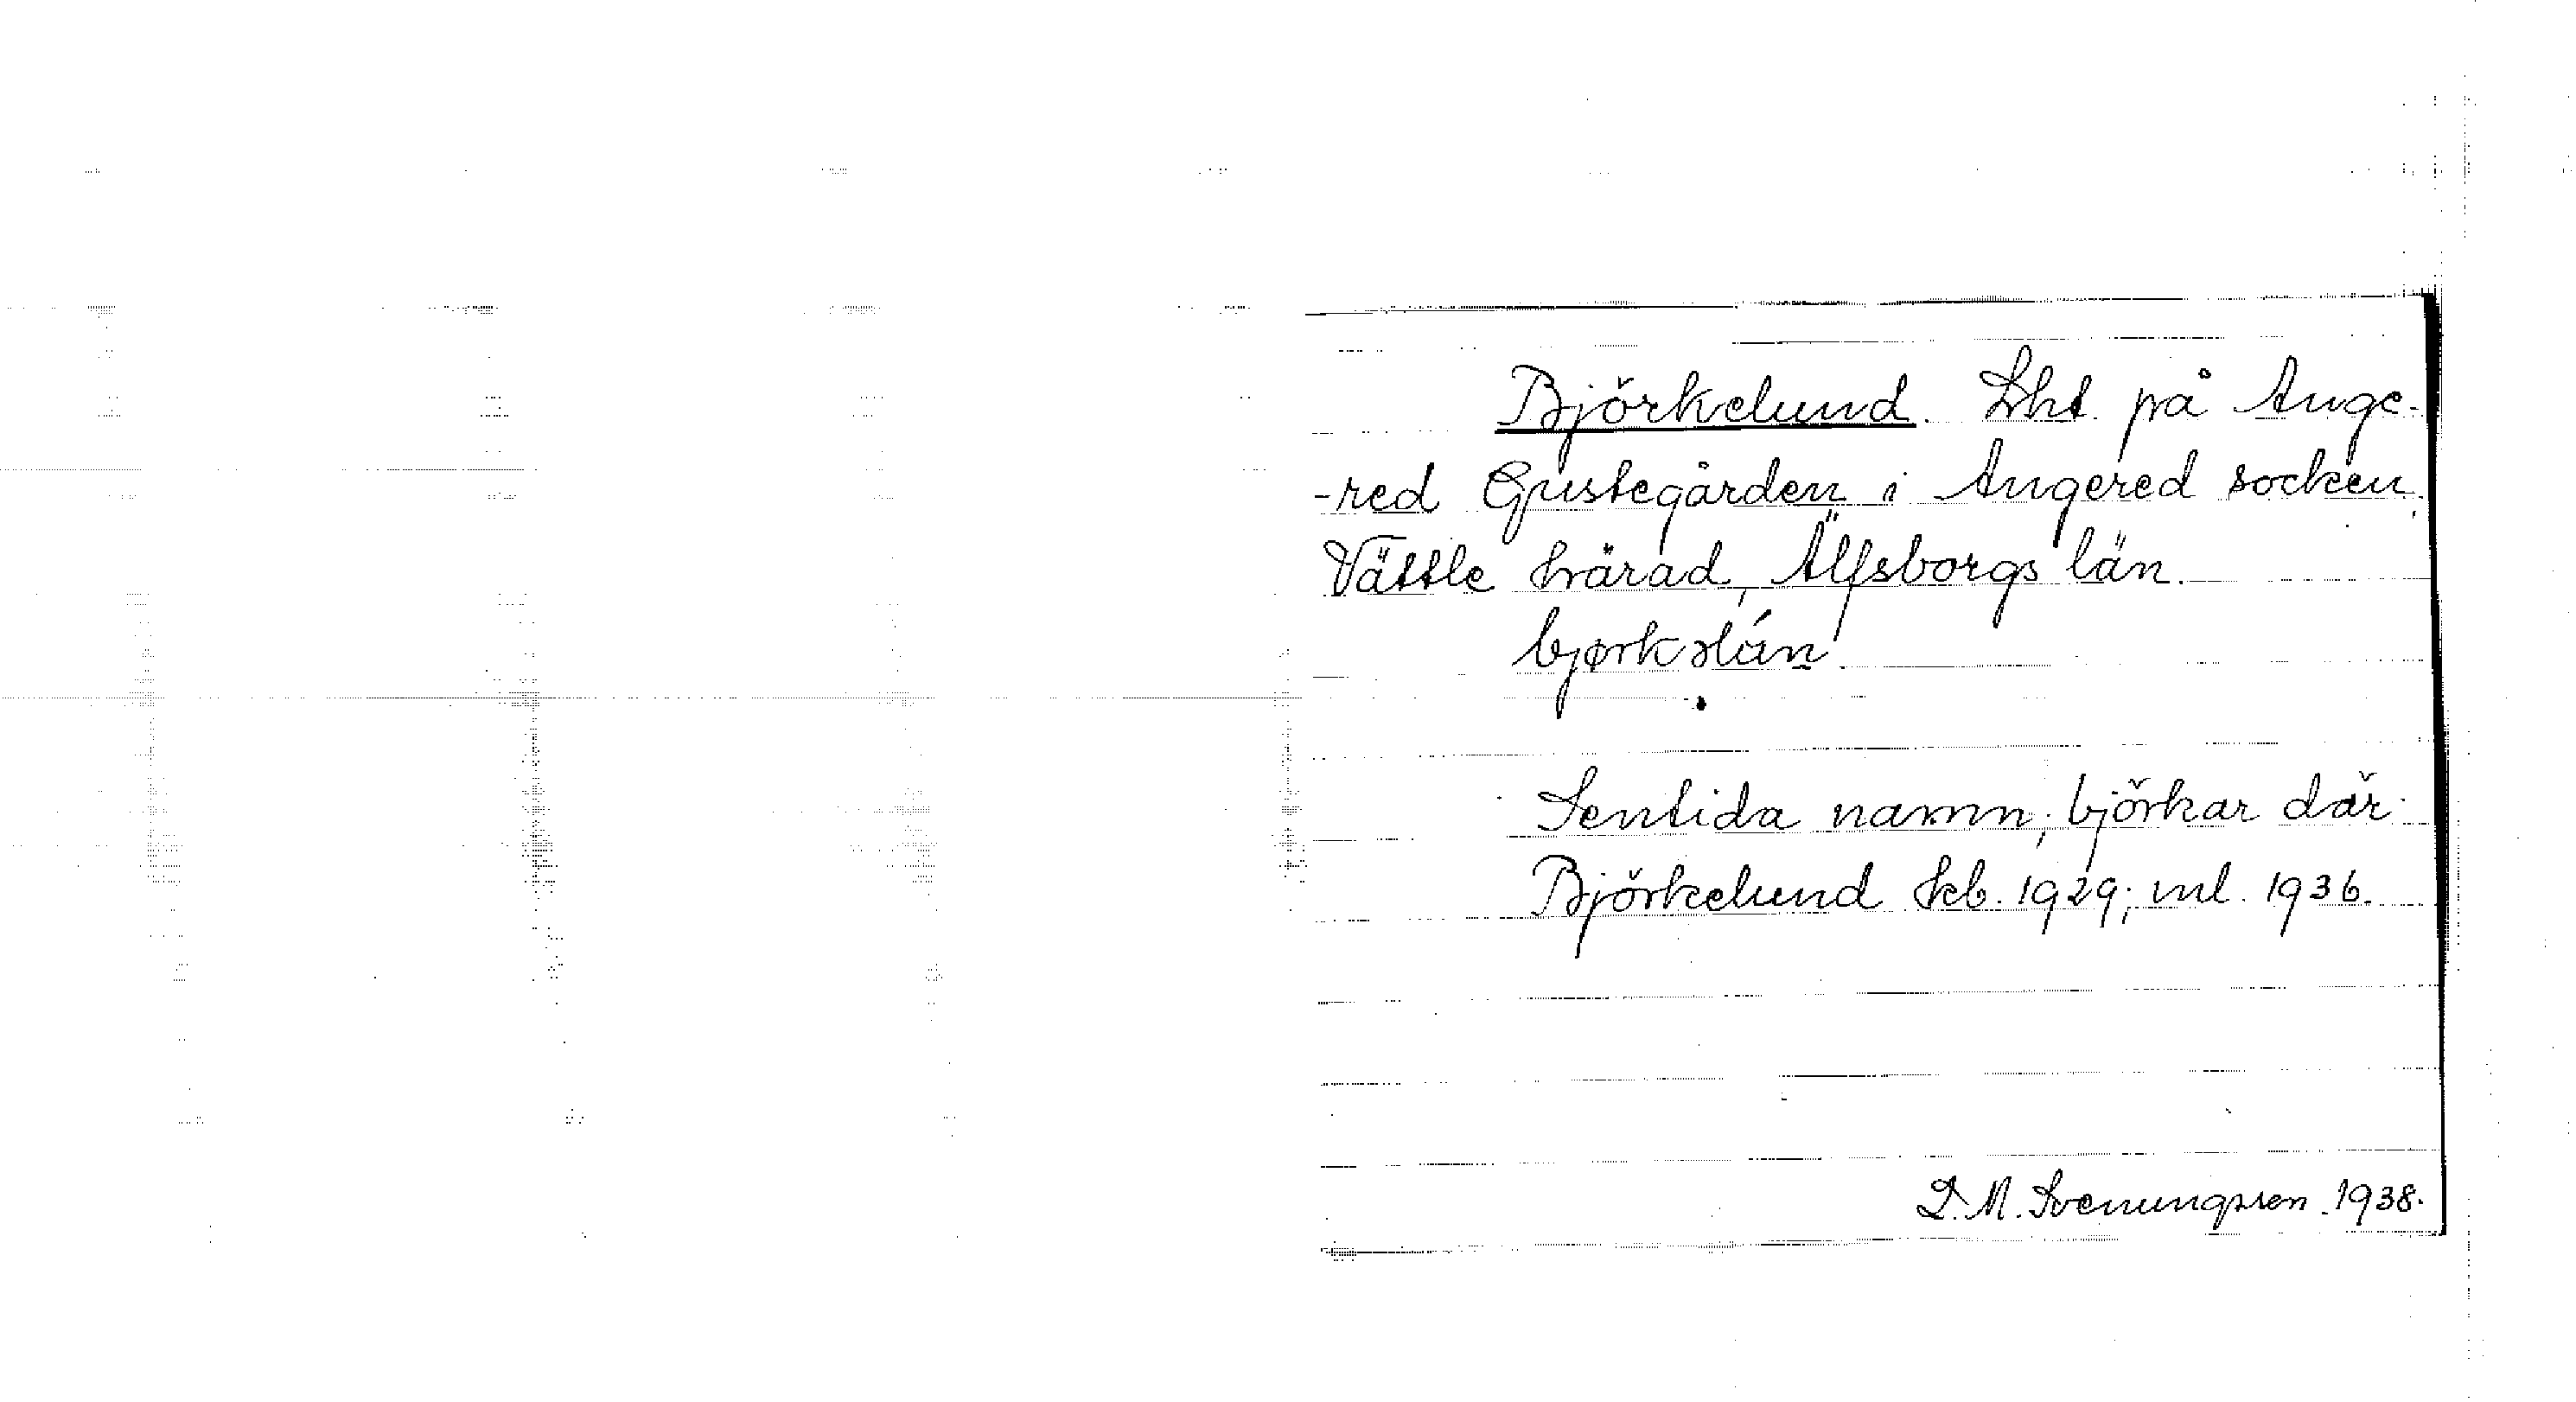 Björkelund. Lht. på Ange-
-red Gustegården i Angered socken,
Vättle härad, Älfsborgs län.
Sentida namn; björkar där.
Björkelund kb. 1929; ml. 1936.
D. M. Svenungsson. 1938.